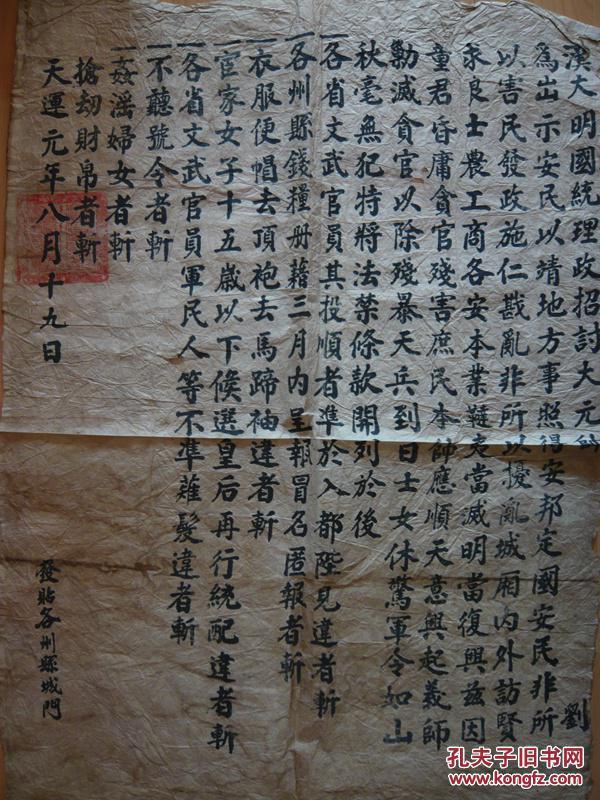 漢大明國統理政招討大元帥 劉
為出示安民以靖地方事照得安邦定國安民非所
以害民發政施仁戡亂非所以擾亂城厢內外訪賢
求良士農工商各安本業韃夷當滅明當復興兹因
童君昏庸貪官殘害庶民本帥應順天意興起義師
勦滅貪官以除殘暴天兵到日士女休驚軍令如山
秋毫無犯特將法禁條款開列於後
一各省文武官員其投順者準於入都陛見違者斬
一各州縣錢糧册藉三月內呈報冒名匿報者斬
一衣服便帽去頂袍去馬蹄袖違者斬
一官家女子十五歲以下候選皇后再行統配違者斬
一各省文武官員軍民人等不準薙髮違者斬
一不聽號令者斬
一姦淫婦女者斬
一搶刼財帛者斬
天運元年八月十九日
發貼各州縣城門
孔夫子旧书网
www.kongfz.com